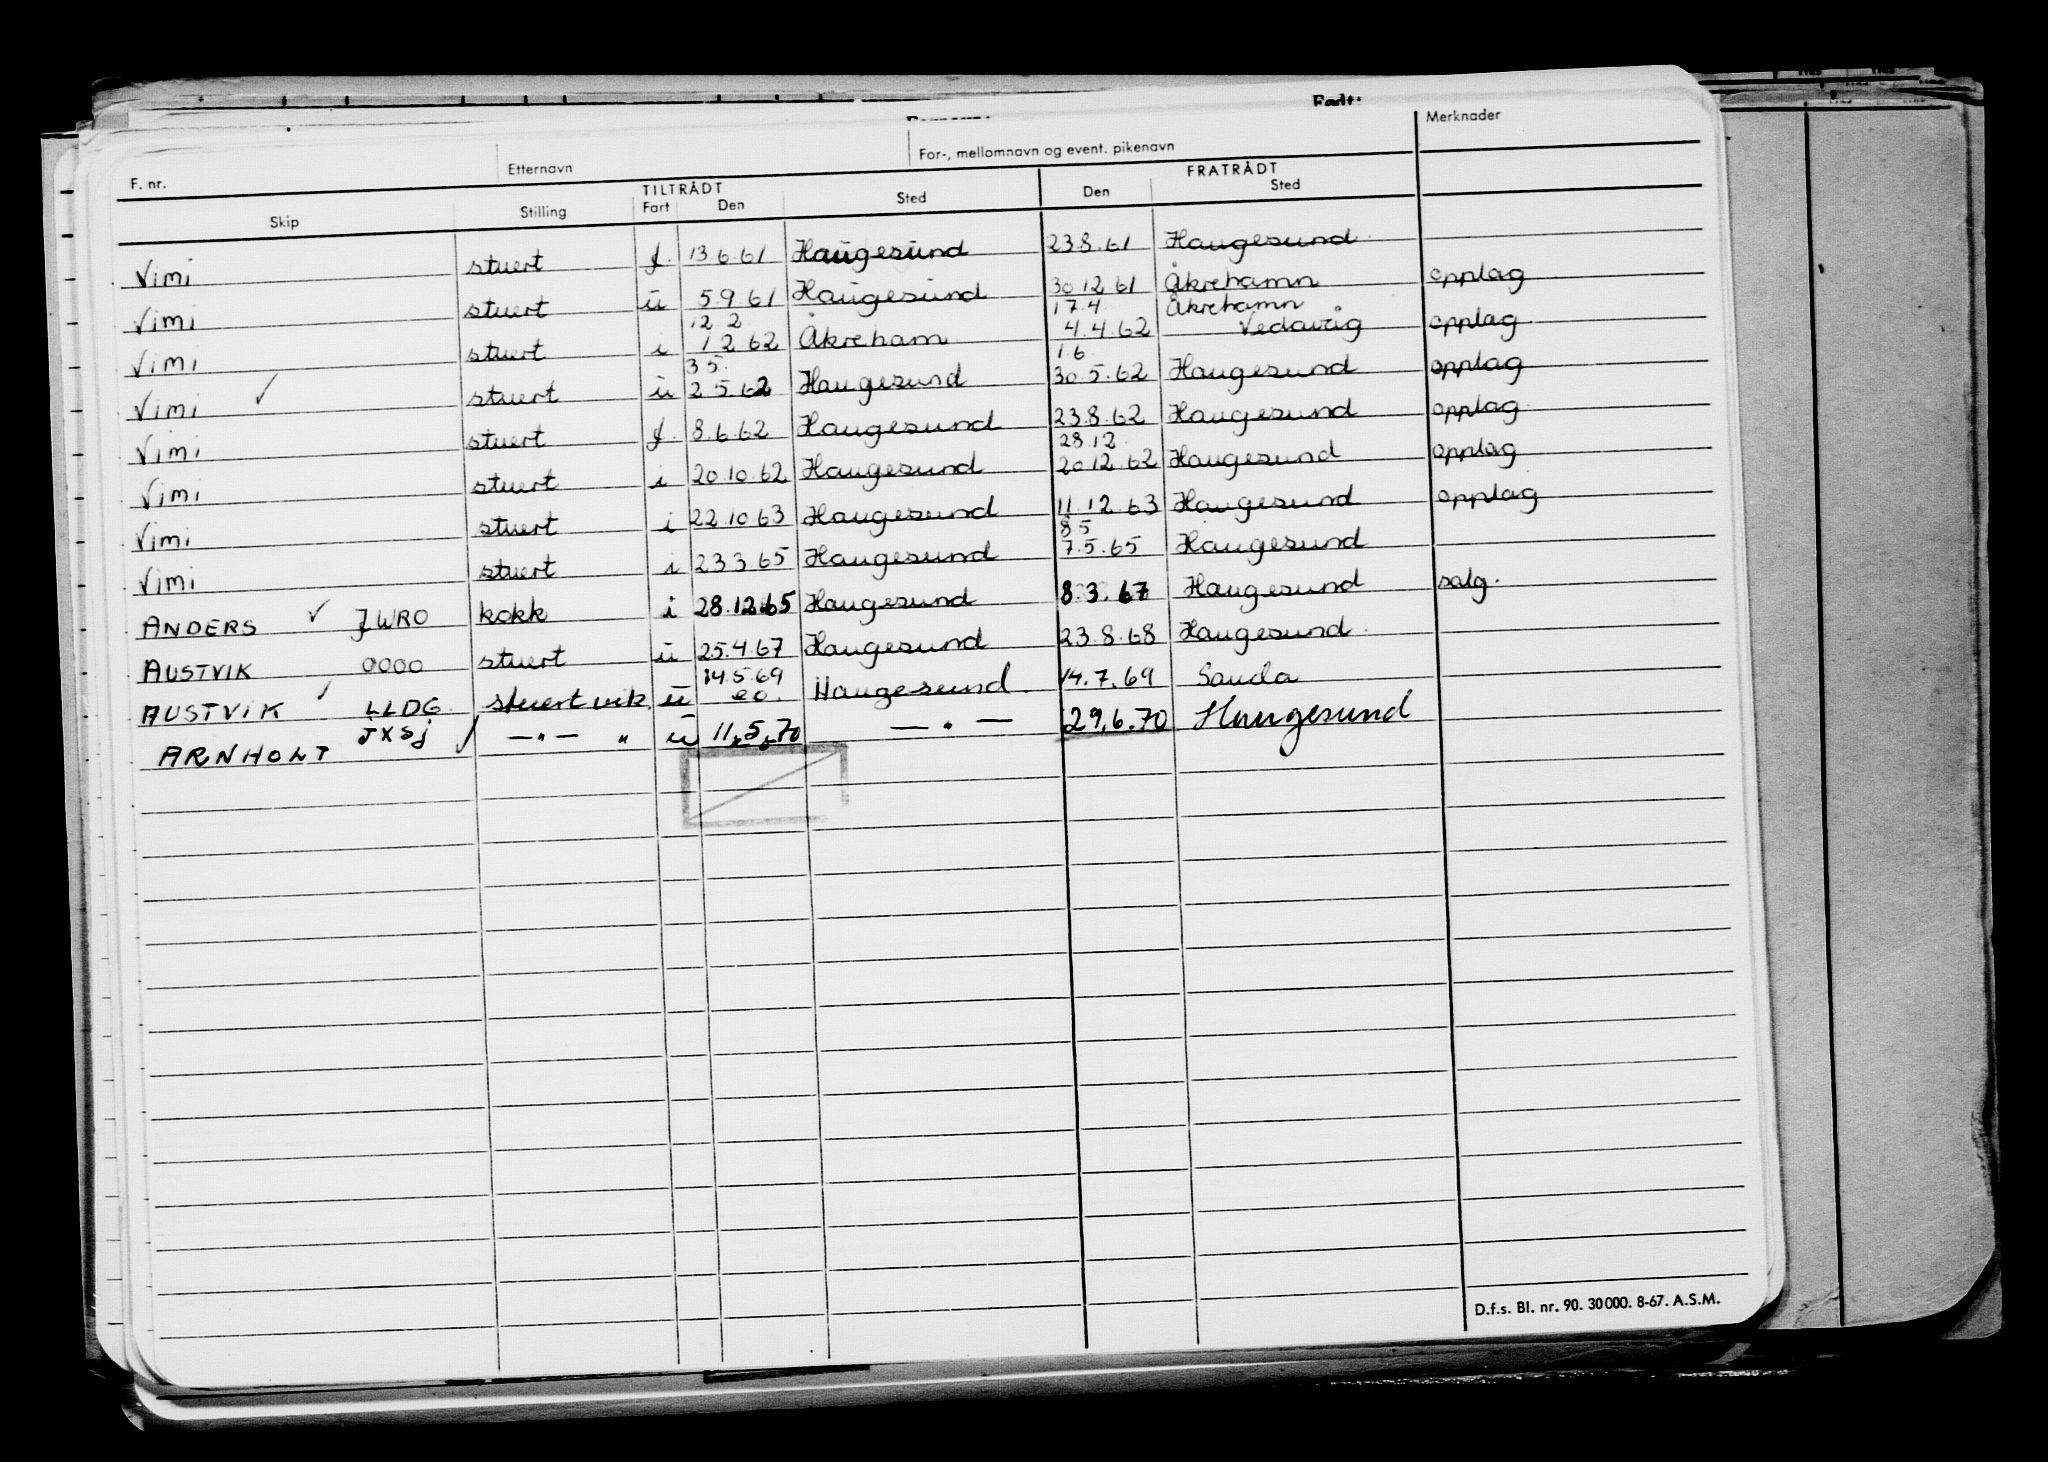 Født:
Merknader
F. nr. Etternavn For-, mellomnavn og event. pikenavn
TILTRÅDT FRATRÅDT
Skip Stilling Fart Den Sted Den Sted
Vimi stuert f. 13.6.61 Haugesund 23.8.61 Haugesund
Vimi stuert u 5.9.61 Haugesund 30.12.61 Åkrehamn opplag
12.2 17.4 Åkrehamn
Vimi stuert i 1.2.62 Åkreham 4.4.62 Vedavåg opplag
3.5. 1.6.
Vimi ✓ stuert u 2.5.62 Haugesund 30.5.62 Haugesund opplag
Vimi stuert f. 8.6.62 Haugesund 23.8.62 Haugesund opplag
28.12.
Vimi stuert i 20.10.62 Haugesund 20.12.62 Haugesund opplag
Vimi stuert i 22.10.63 Haugesund 11.12.63 Haugesund opplag
8.5
Vimi stuert i 23.3.65 Haugesund 7.5.65 Haugesund
ANDERS ✓ JWRO kokk i 28.12.65 Haugesund 8.3.67 Haugesund salg.
AUSTVIK OOOO stuert u 25.4.67 Haugesund 23.8.68 Haugesund.
14.5.69
AUSTVIK ✓ LLDG stuert vik u eo. Haugesund. 14.7.69 Sauda
ARNHOLT JXSJ ✓ —"— " u 11.5.70 —"— 29.6.70 Haugesund
D.f.s. Bl. nr. 90. 30000. 8-67. A.S.M.